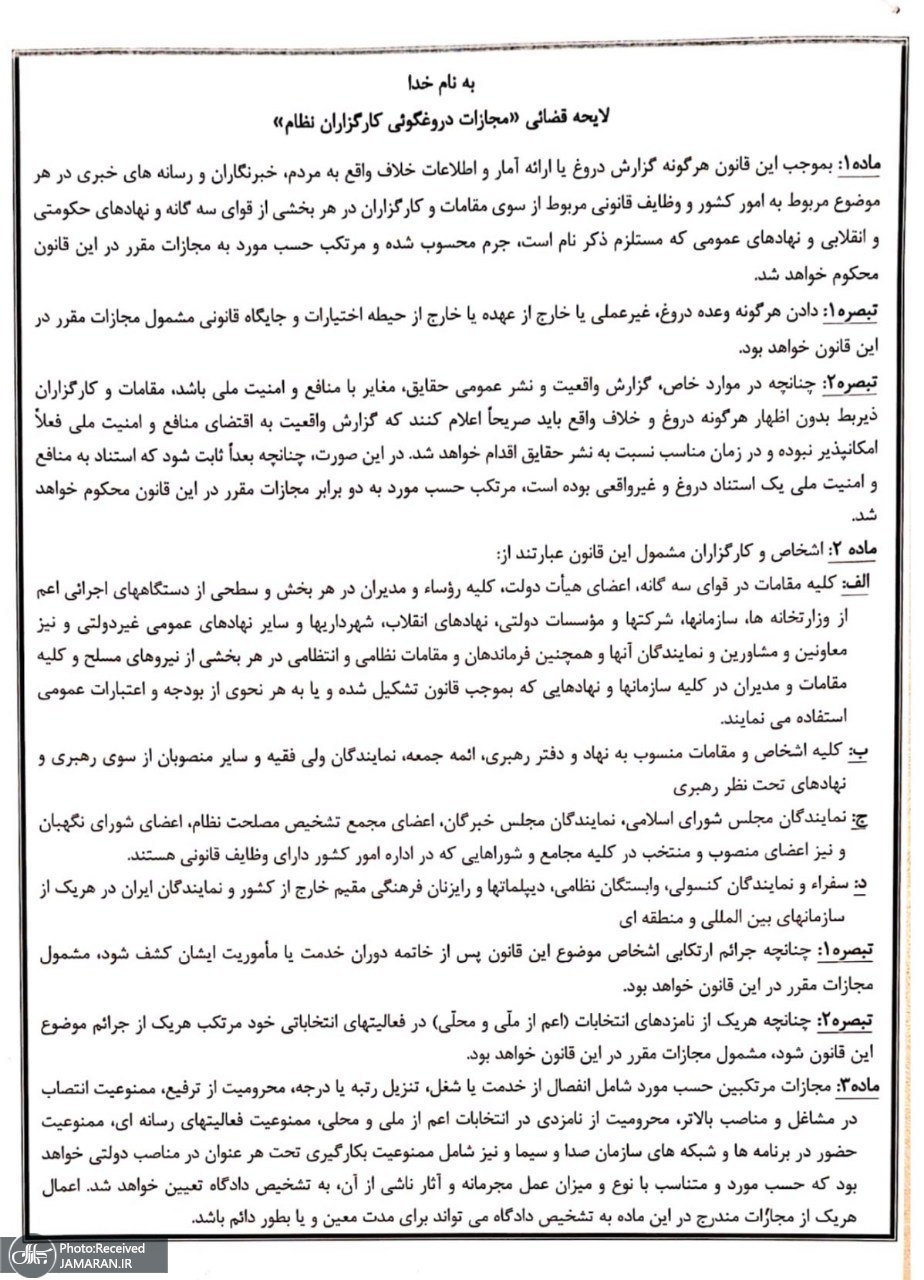 به نام خدا
لایحه قضائی «مجازات دروغگوئی کارگزاران نظام»
ماده۱: بموجب این قانون هرگونه گزارش دروغ یا ارائه آمار و اطلاعات خلاف واقع به مردم، خبرنگاران و رسانه های خبری در هر
موضوع مربوط به امور کشور و وظایف قانونی مربوط از سوی مقامات و کارگزاران در هر بخشی از قوای سه گانه و نهادهای حکومتی
و انقلابی و نهادهای عمومی که مستلزم ذکر نام است، جرم محسوب شده و مرتکب حسب مورد به مجازات مقرر در این قانون
محکوم خواهد شد.
تبصره۱: دادن هرگونه وعده دروغ، غیرعملی یا خارج از عهده یا خارج از حیطه اختیارات و جایگاه قانونی مشمول مجازات مقرر در
این قانون خواهد بود.
تبصره۲: چنانچه در موارد خاص، گزارش واقعیت و نشر عمومی حقایق، مغایر با منافع و امنیت ملی باشد، مقامات و کارگزاران
ذیربط بدون اظهار هرگونه دروغ و خلاف واقع باید صریحاً اعلام کنند که گزارش واقعیت به اقتضای منافع و امنیت ملی فعلاً
امکانپذیر نبوده و در زمان مناسب نسبت به نشر حقایق اقدام خواهد شد. در این صورت، چنانچه بعداً ثابت شود که استناد به منافع
و امنیت ملی یک استناد دروغ و غیرواقعی بوده است، مرتکب حسب مورد به دو برابر مجازات مقرر در این قانون محکوم خواهد
شد.
ماده ۲: اشخاص و کارگزاران مشمول این قانون عبارتند از:
الف: کلیه مقامات در قوای سه گانه، اعضای هیأت دولت، کلیه رؤساء و مدیران در هر بخش و سطحی از دستگاههای اجرائی اعم
از وزارتخانه ها، سازمانها، شرکتها و مؤسسات دولتی، نهادهای انقلاب، شهرداریها و سایر نهادهای عمومی غیردولتی و نیز
معاونین و مشاورین و نمایندگان آنها و همچنین فرماندهان و مقامات نظامی و انتظامی در هر بخشی از نیروهای مسلح و کلیه
مقامات و مدیران در کلیه سازمانها و نهادهایی که بموجب قانون تشکیل شده و یا به هر نحوی از بودجه و اعتبارات عمومی
استفاده می نمایند.
ب: کلیه اشخاص و مقامات منسوب به نهاد و دفتر رهبری، ائمه جمعه، نمایندگان ولی فقیه و سایر منصوبان از سوی رهبری و
نهادهای تحت نظر رهبری
ج: نمایندگان مجلس شورای اسلامی، نمایندگان مجلس خبرگان، اعضای مجمع تشخیص مصلحت نظام، اعضای شورای نگهبان
و نیز اعضای منصوب و منتخب در کلیه مجامع و شوراهایی که در اداره امور کشور دارای وظایف قانونی هستند.
د: سفراء و نمایندگان کنسولی، وابستگان نظامی، دیپلماتها و رایزنان فرهنگی مقیم خارج از کشور و نمایندگان ایران در هریک از
سازمانهای بین المللی و منطقه ای
تبصره۱: چنانچه جرائم ارتکابی اشخاص موضوع این قانون پس از خاتمه دوران خدمت یا مأموریت ایشان کشف شود، مشمول
مجازات مقرر در این قانون خواهد بود.
تبصره۲: چنانچه هریک از نامزدهای انتخابات (اعم از ملّی و محلّی) در فعالیتهای انتخاباتی خود مرتکب هریک از جرائم موضوع
این قانون شود، مشمول مجازات مقرر در این قانون خواهد بود.
ماده۳: مجازات مرتکبین حسب مورد شامل انفصال از خدمت یا شغل، تنزیل رتبه یا درجه، محرومیت از ترفیع، ممنوعیت انتصاب
در مشاغل و مناصب بالاتر، محرومیت از نامزدی در انتخابات اعم از ملی و محلی، ممنوعیت فعالیتهای رسانه ای، ممنوعیت
حضور در برنامه ها و شبکه های سازمان صدا و سیما و نیز شامل ممنوعیت بکارگیری تحت هر عنوان در مناصب دولتی خواهد
بود که حسب مورد و متناسب با نوع و میزان عمل مجرمانه و آثار ناشی از آن، به تشخیص دادگاه تعیین خواهد شد. اعمال
هریک از مجازات مندرج در این ماده به تشخیص دادگاه می تواند برای مدت معین و یا بطور دائم باشد.
Photo:Received
JAMARAN.IR